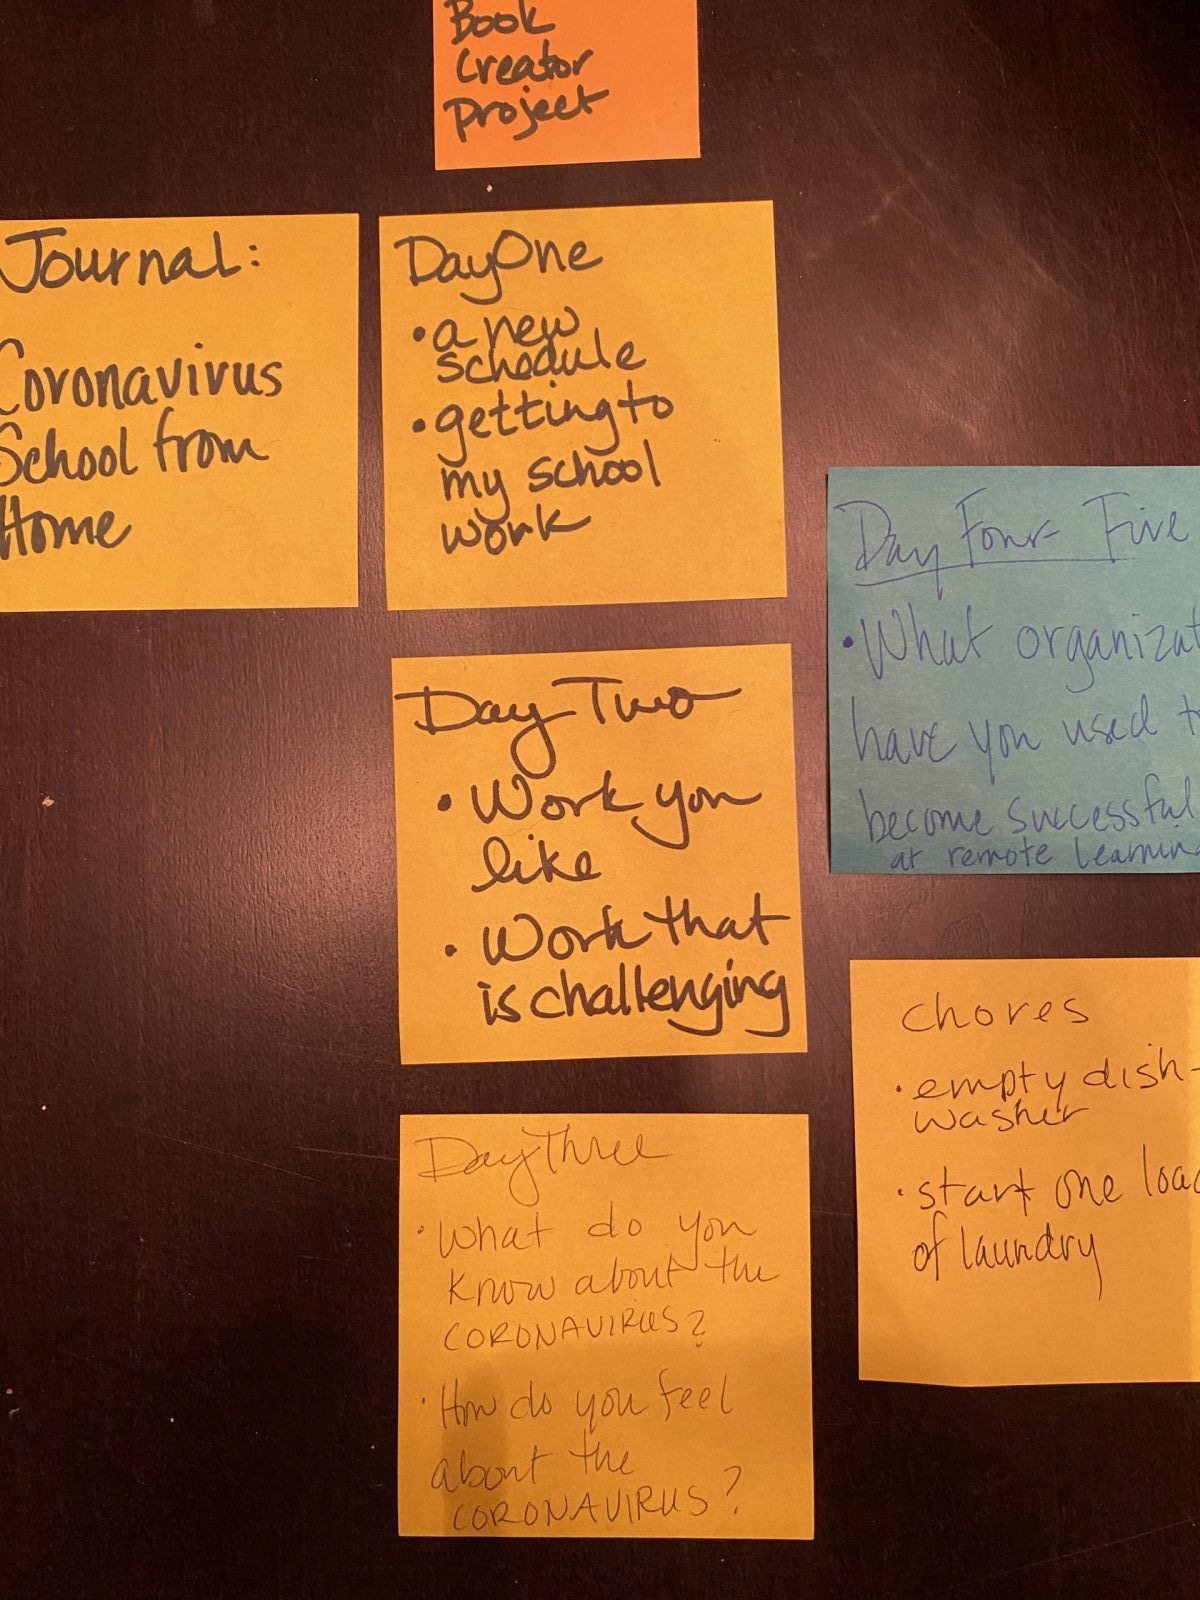 Book
Creator
Project
Journal:
Coronavirus
School from
Home
Day One
• a new
schedule
• getting to
my school
work
Day Two
• Work you
like
• Work that
is challenging
Day Three
• What do you
know about the
CORONAVIRUS?
• How do you feel
about the
CORONAVIRUS?
Day Four Five
• What organizat
have you used t
become successful
at remote learning
chores
• empty dish-
washer
• start one load
of laundry